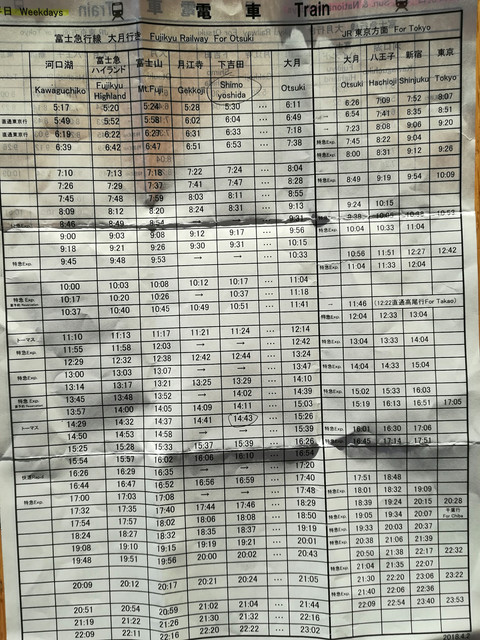 平日 Weekdays 電 車 Train
富士急行線 大月行き Fujikyu Railway For Otsuki JR 東京方面 For Tokyo
河口湖 富士急ハイランド 富士山 月江寺 下吉田 大月 大月 八王子 新宿 東京
Kawaguchiko Fujikyu Highland Mt.Fuji Gekkoji Shimo yoshida … Otsuki Otsuki Hachioji Shinjuku Tokyo
5:17 5:20 5:24 5:28 5:30 … 6:11 6:26 7:09 7:52 9:07
直通東京行 5:49 5:52 5:58 6:02 6:04 … 6:49 → 7:41 8:35 8:51
直通東京行 6:19 6:22 6:27 6:31 6:33 … 7:18 → 7:23 8:08 9:06 9:20
6:39 6:42 6:47 6:51 6:53 … 7:38 特急Exp. 7:45 8:22 9:04
特急Exp. 8:00 8:31 9:12 9:26
7:10 7:13 7:18 7:22 7:24 … 8:04
7:26 7:29 7:37 7:41 7:47 … 8:28 特急Exp. 8:49 9:19 9:54 10:09
7:45 7:48 7:59 8:03 8:11 … 8:55
8:09 8:12 8:20 8:24 8:31 … 9:13 9:24 10:15
8:46 8:49 8:54 9:31 9:38 10:53
9:00 9:03 9:08 9:12 9:17 … 9:56 特急Exp. 10:04 10:33 11:04
9:18 9:21 9:26 9:30 9:31 … 10:15
特急Exp. 9:45 9:48 9:53 → → … 10:33 10:56 11:51 12:27 12:42
特急Exp. 11:04 11:33 12:04
10:00 10:03 10:08 10:12 10:17 … 11:04
特急 Exp. 10:17 10:20 10:26 → 10:37 … 11:18
10:37 10:40 10:45 10:49 10:51 … 11:41 11:46 (12:22直通高尾行For Takao)
特急Exp. 12:04 12:33 13:04
トーマス 11:10 11:13 11:17 11:21 11:24 … 12:14
特急Exp. 11:55 11:58 12:03 → → … 12:42 特急Exp. 13:04 13:33 14:04
12:29 12:32 12:38 12:42 12:44 … 13:24
特急Exp. 13:00 13:03 13:07 → → … 13:47 特急Exp. 14:04 14:33 15:04
13:14 13:17 13:21 13:25 13:29 … 14:10
特急 Exp. 13:45 13:48 13:52 → 14:02 … 14:39 特急Exp. 15:02 15:33 16:03
13:57 14:00 14:05 14:09 14:11 … 15:03 15:19 16:13 16:51 17:05
トーマス 14:29 14:32 14:37 14:41 14:43 … 15:26
14:50 14:53 14:58 → → … 15:39 特急Exp. 16:01 16:30 17:06
15:25 15:28 15:33 15:37 15:39 … 16:26 特急Exp. 16:45 17:14 17:51
15:54 15:57 16:02 16:06 16:10 … 16:54
快速Rapid 16:26 16:29 16:35 → → … 17:20
16:44 16:47 16:52 16:56 16:59 … 17:40 17:51 18:48
特急Exp. 17:00 17:03 17:08 → → … 17:48 特急Exp. 18:01 18:32 19:09
17:32 17:35 17:40 17:44 17:46 … 18:29 18:39 19:24 20:15 20:28
17:54 17:57 18:02 18:06 18:08 … 18:50 特急Exp. 19:05 19:34 20:07 千葉行 For Chiba
18:24 18:27 18:32 18:35 18:37 … 19:19 19:33 20:03 20:37
19:08 19:10 19:15 19:19 19:21 … 20:01 20:38 21:06 21:39
19:48 19:51 19:56 20:00 20:02 … 20:43 20:50 21:38 22:17 22:32
特急Exp. 21:04 21:35 22:07
20:09 20:12 20:17 20:21 20:24 … 21:05 21:30 22:20 23:06 23:22
特急Exp. 21:40 22:06 22:36
20:51 20:54 20:59 21:02 21:04 … 21:44 22:09 22:54 23:40 23:53
21:19 21:22 21:28 21:30 21:32 … 22:16
22:09 22:11 22:16 22:20 22:22 … 23:02
2018.4.2